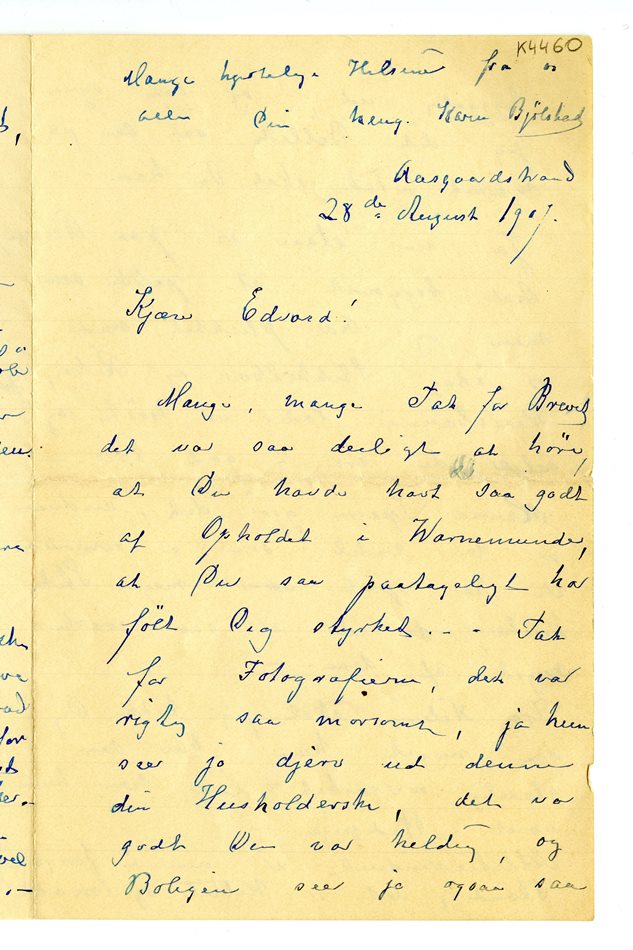 K4460
Mange hjertelige Hilsener fra os
alle Din heng. Karen Bjølstad
Aasgaardstrand
28de August 1907.
Kjære Edvard!
Mange, mange Tak for Brevet
det var saa deiligt at høre,
at Du havde havt saa godt
af Opholdet i Warnemünde,
at Du saa paatageligt har
følt Dig styrket . . - Tak
for Fotografierne, det var
rigtig saa morsomt, ja hun
seer jo djerv ud denne
din Husholderske, det var
godt Du var heldig, og
Boligen seer jo ogsaa saa